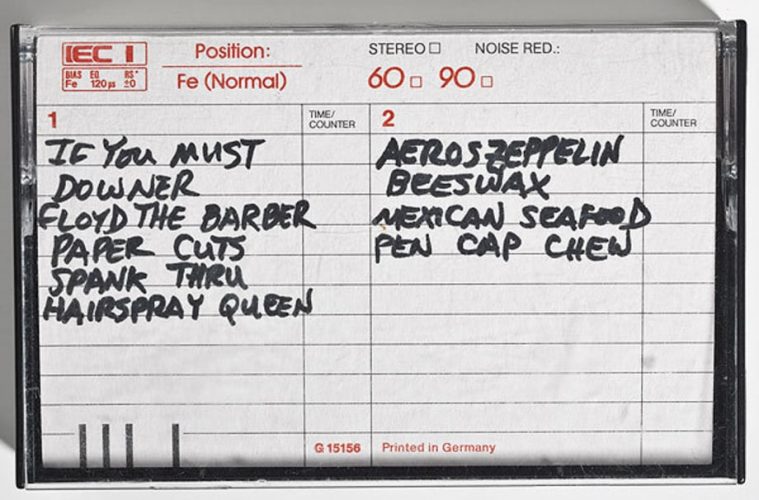 IEC I
BIAS EQ RS*
Fe 120µs ±0
Position:
Fe (Normal)
STEREO □ NOISE RED.:
60 □ 90 □
1
TIME/
COUNTER
2
TIME/
COUNTER
IF YOU MUST
DOWNER
FLOYD THE BARBER
PAPER CUTS
SPANK THRU
HAIRSPRAY QUEEN
AEROSZEPPELIN
BEESWAX
MEXICAN SEAFOOD
PEN CAP CHEW
G 15156
Printed in Germany